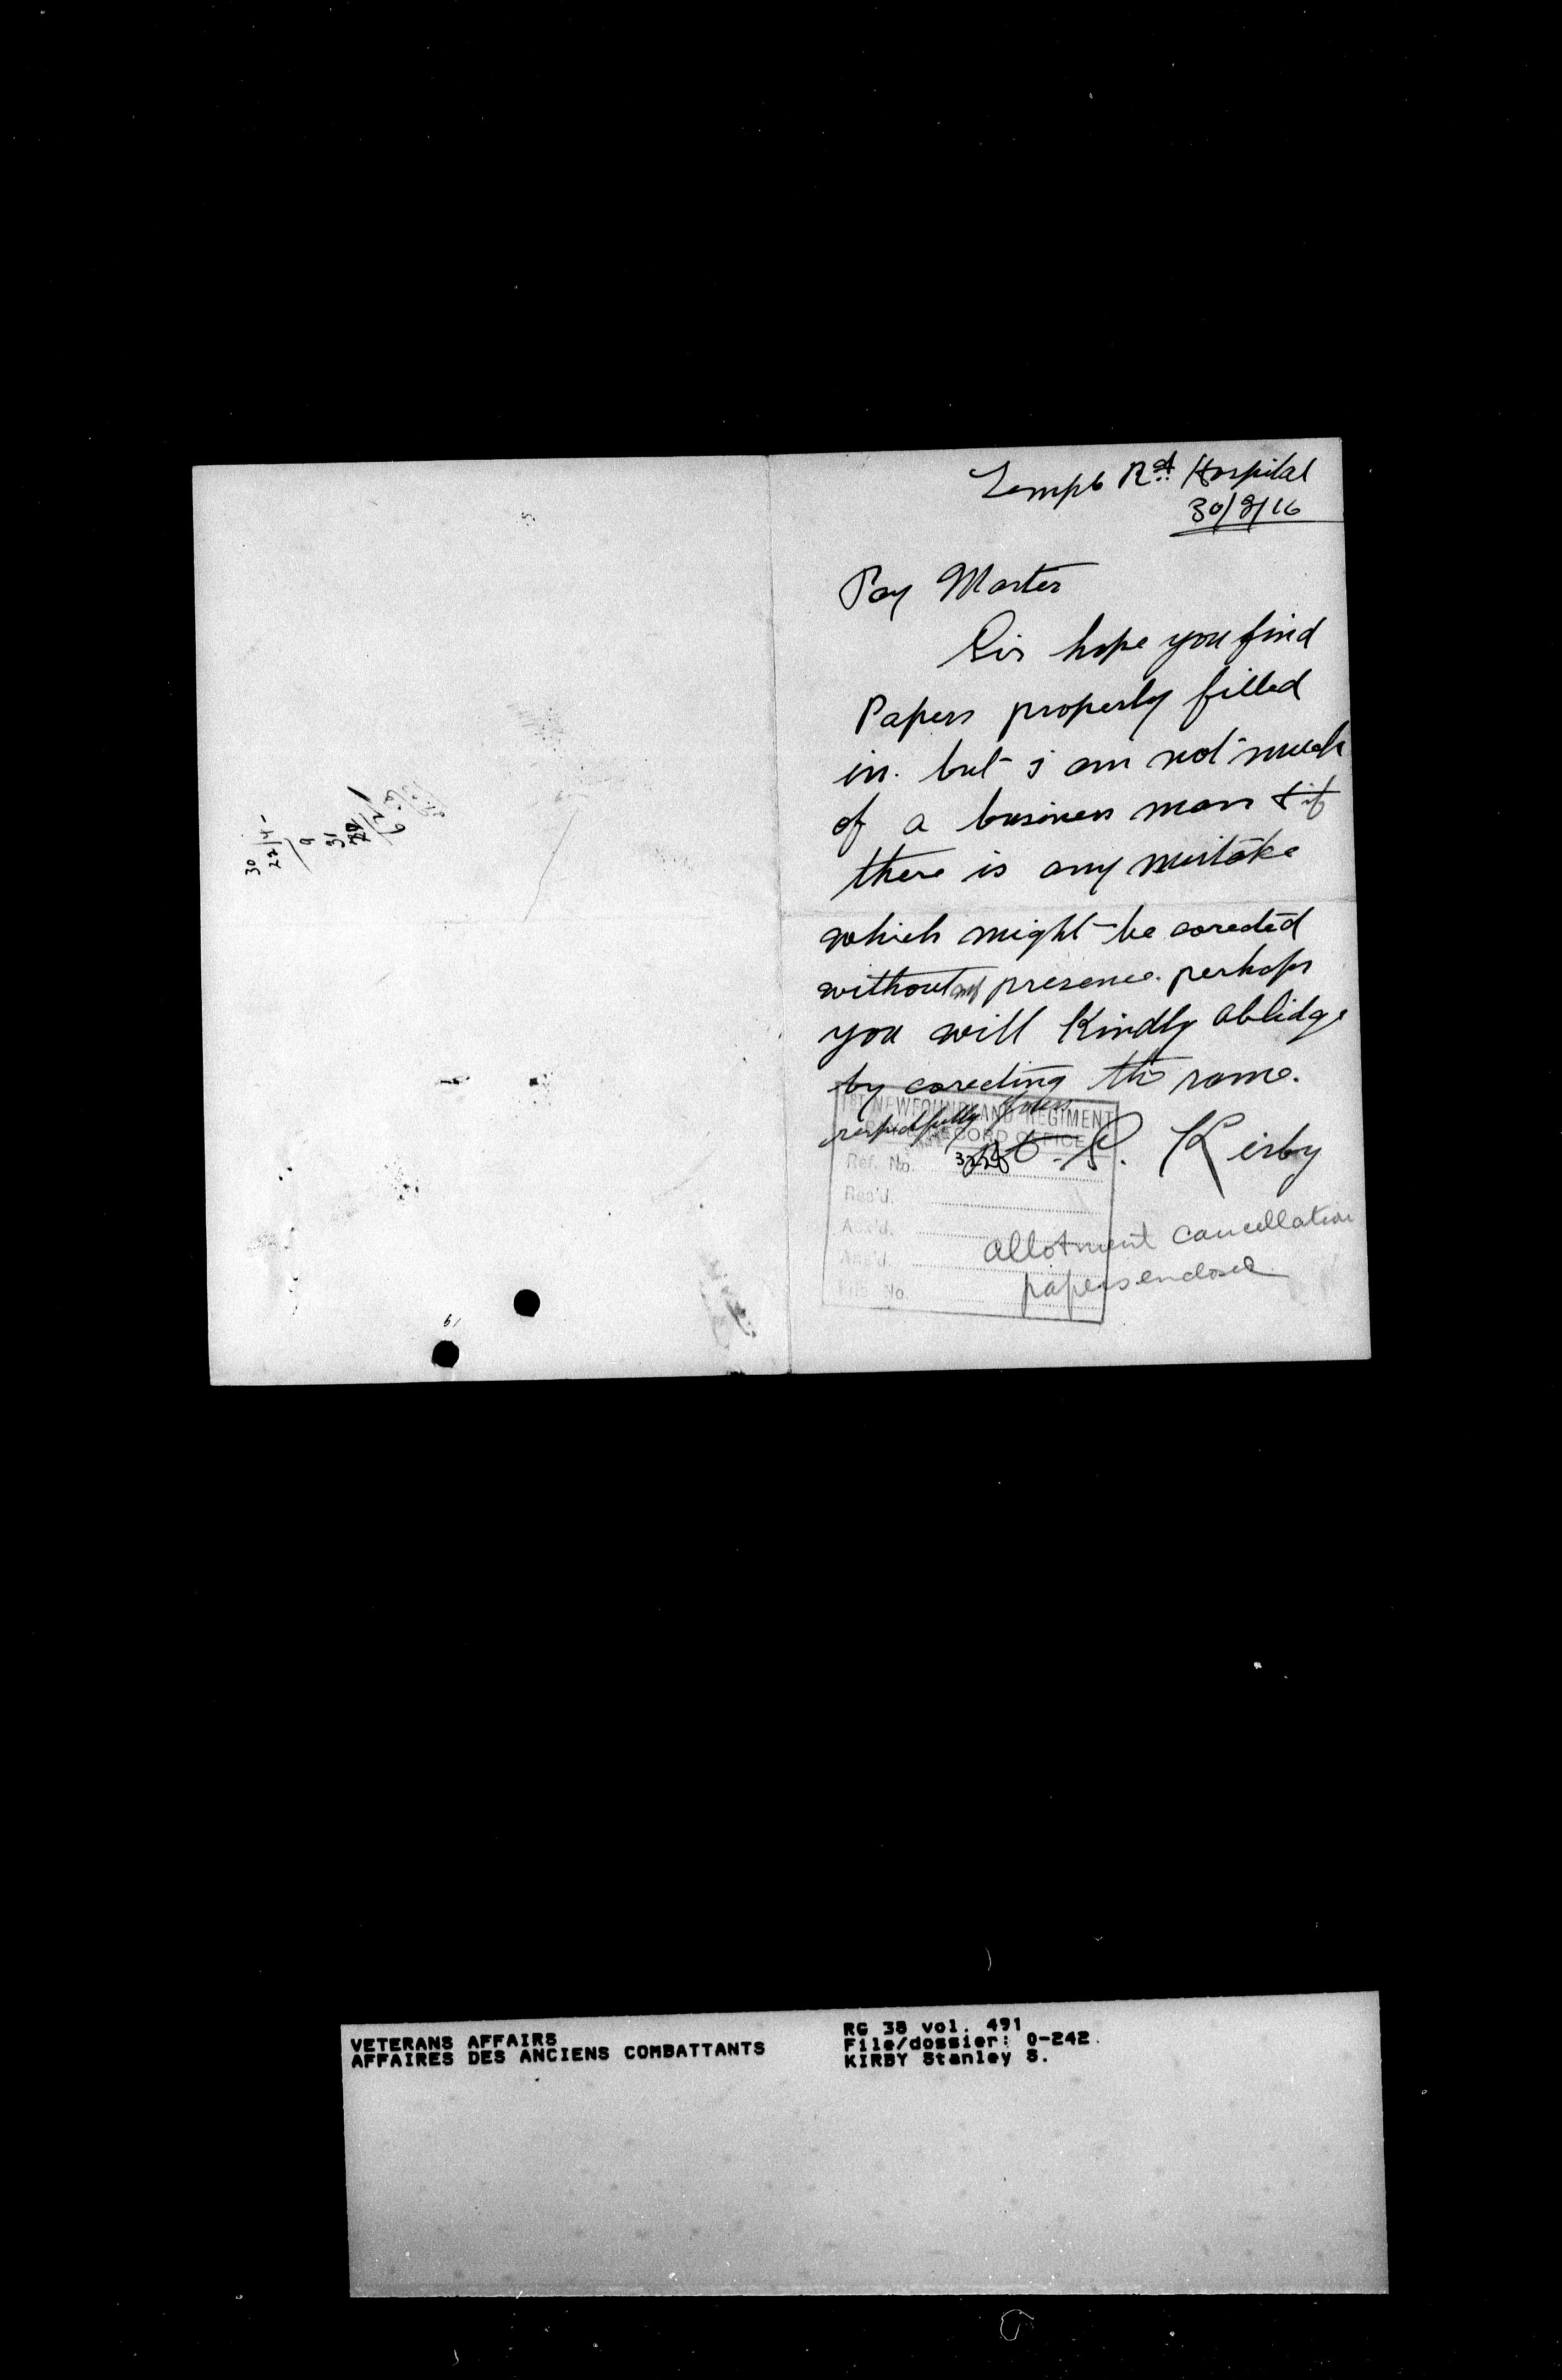 Temple Rd Hospital
30/9/16
Pay Master
Sir hope you find
Papers properly filled
in. but i am not much
of a business man & if
there is any mistake
which might be corected
without my presence. perhaps
you will Kindly oblidge
by corecting the same.
respectfully yours
S. Kirby
1ST NEWFOUNDLAND REGIMENT
RECORD OFFICE
Ref. No.
Rec'd.
Ack'd.
Ans'd.
File No.
allotment cancellation
papers enclosed
30
22/4-
9
31
VETERANS AFFAIRS
AFFAIRES DES ANCIENS COMBATTANTS
RG 38 vol. 491
File/dossier: 0-242.
KIRBY Stanley S.